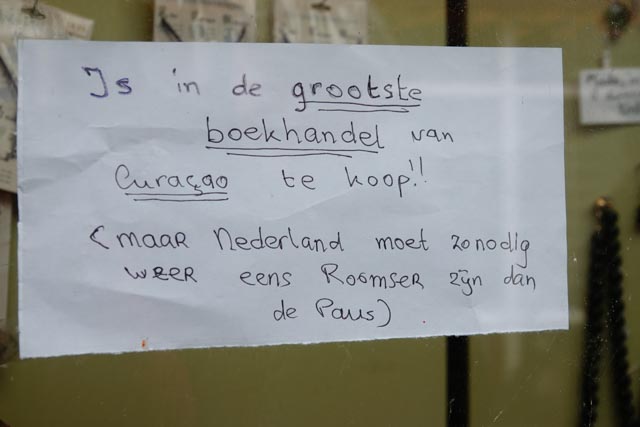 Is in de grootste
boekhandel van
Curaçao te koop!!
(maar Nederland moet zonodig
weer eens Roomser zijn dan
de Paus)